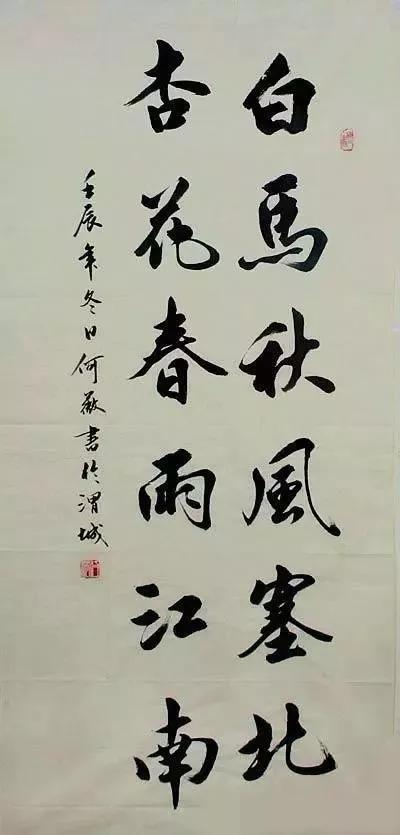 白馬秋風塞北
杏花春雨江南
壬辰年冬日何書於渭城